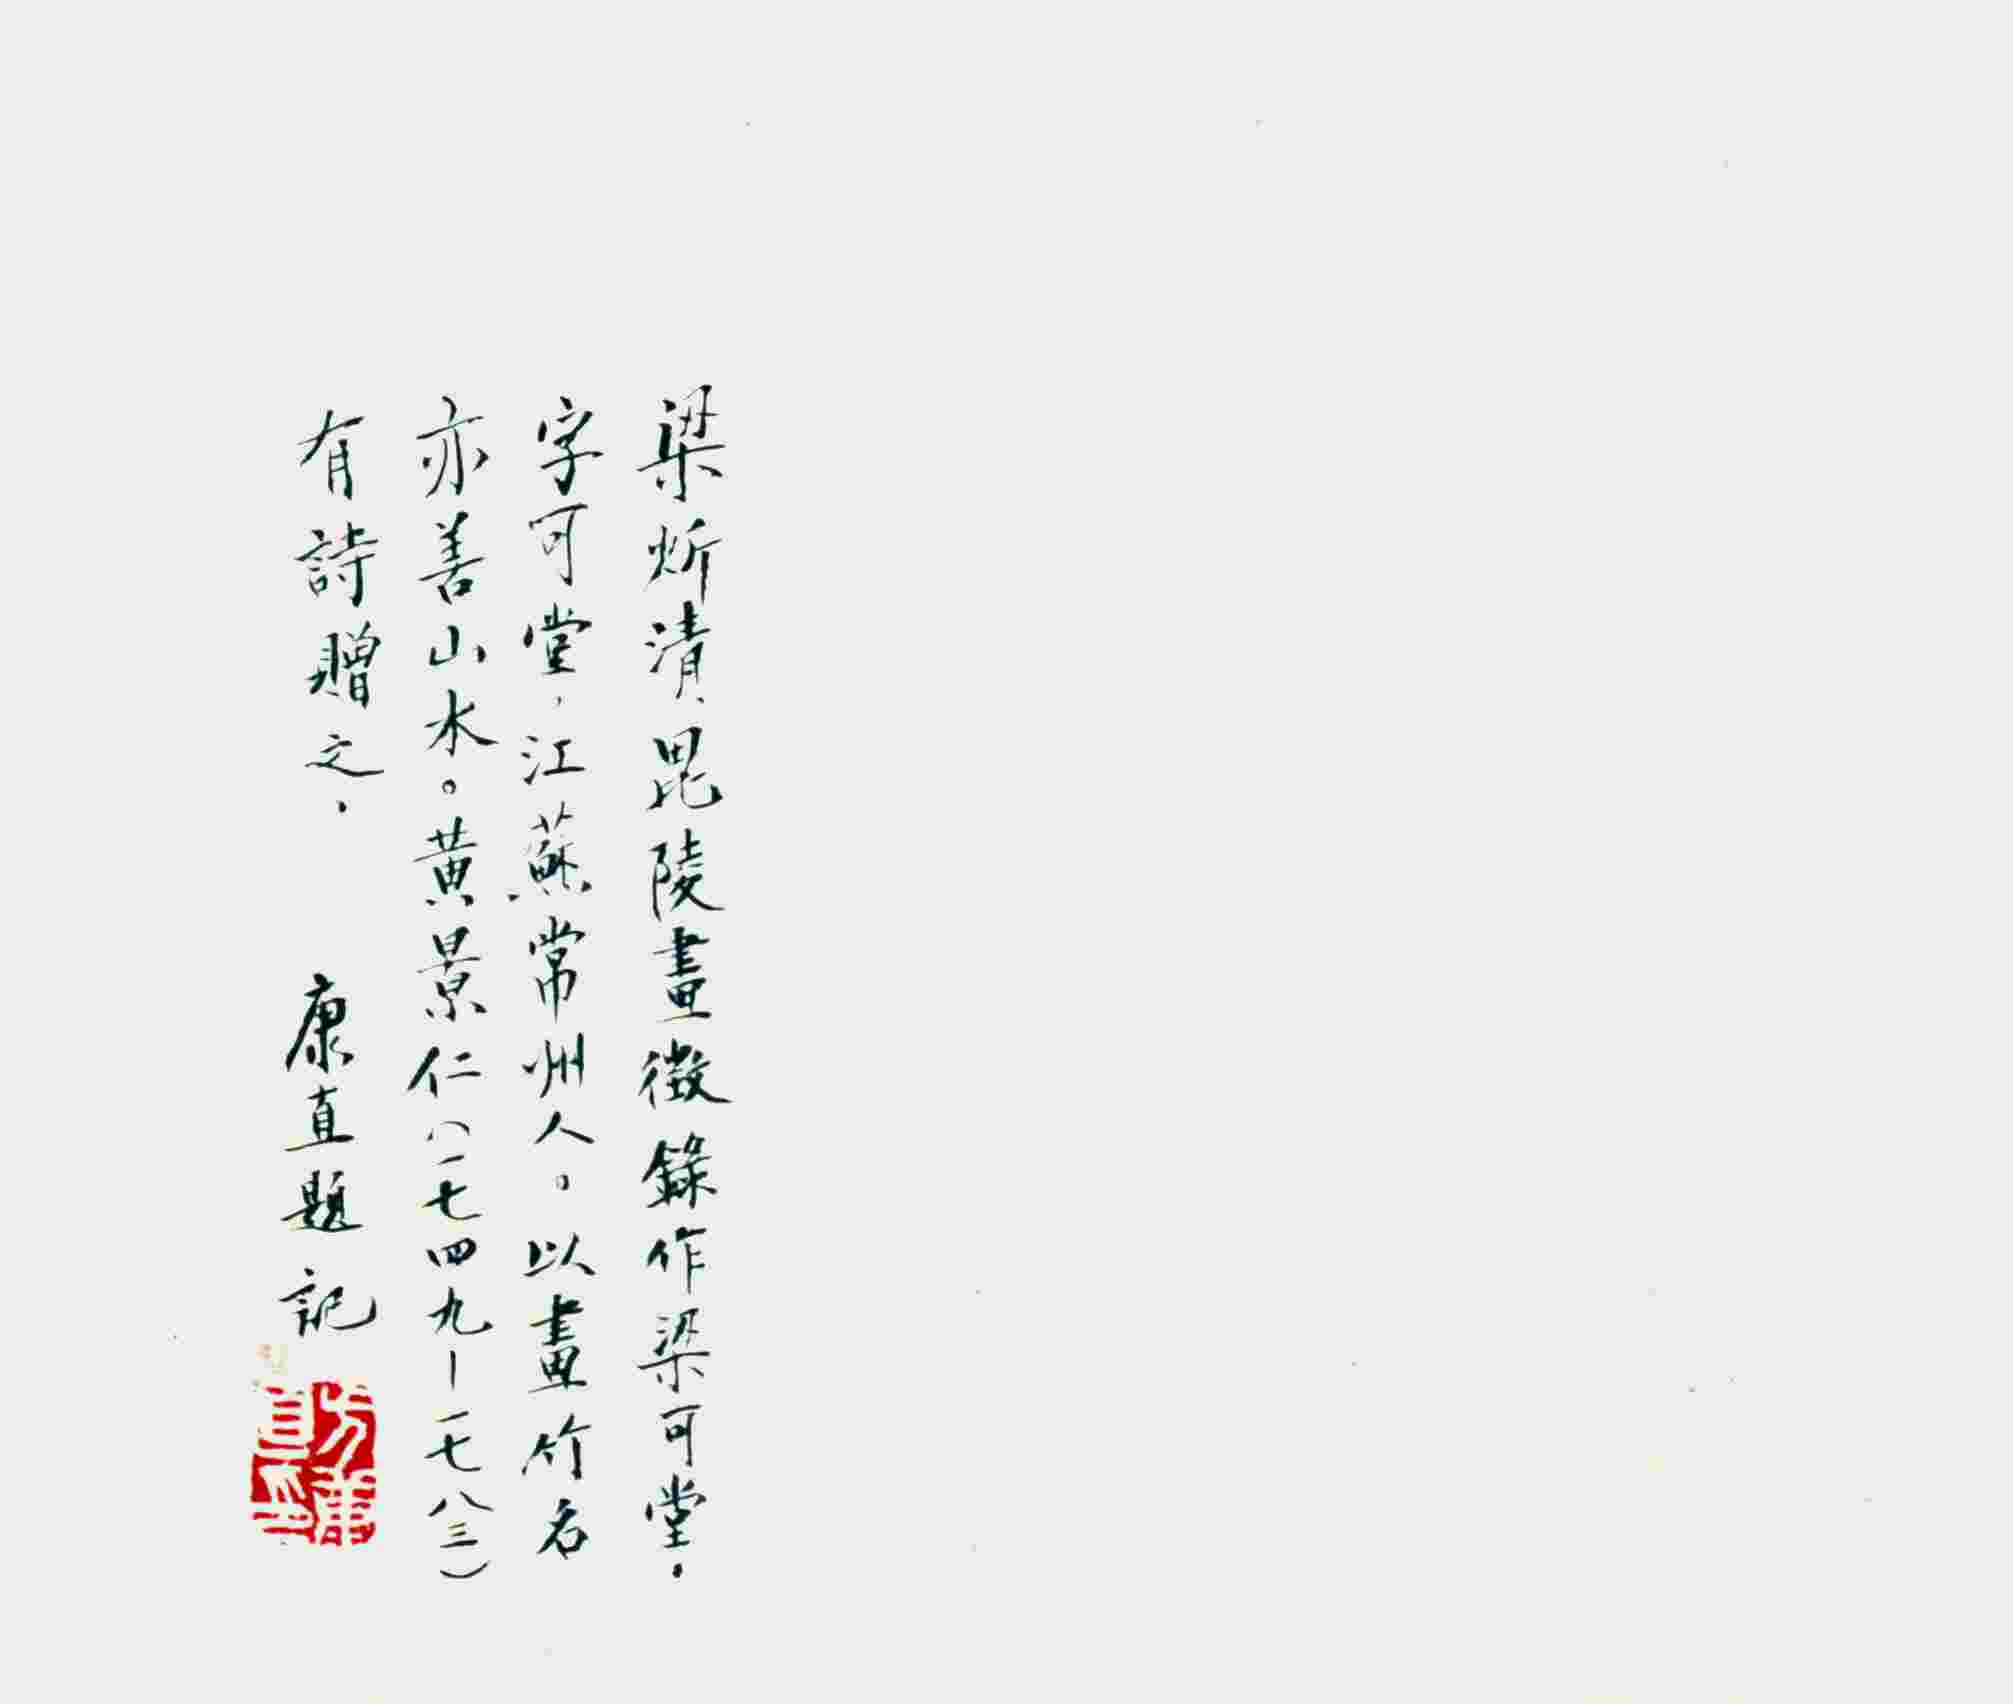 梁炘清、毘陵畫徵錄作梁可堂，
字可堂，江蘇常州人。以畫竹名
亦善山水。黃景仁（一七四九－一七八三）
有詩贈之，
康直題記